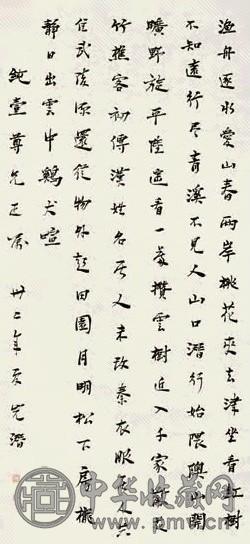 漁舟逐水愛山春兩岸桃花夾去津坐看紅樹
不知遠行尽青溪不見人山口潛行始隈隩山開
曠野旋平陸遥看一處攢雲樹近入千家散花
竹樵客初傳漢姓名居人未改秦衣服居人共
住武陵源還從物外起田園月明松下房櫳
靜日出雲中鷄犬喧
鈍堂尊兄正屬 卅二年夏
中华收藏网